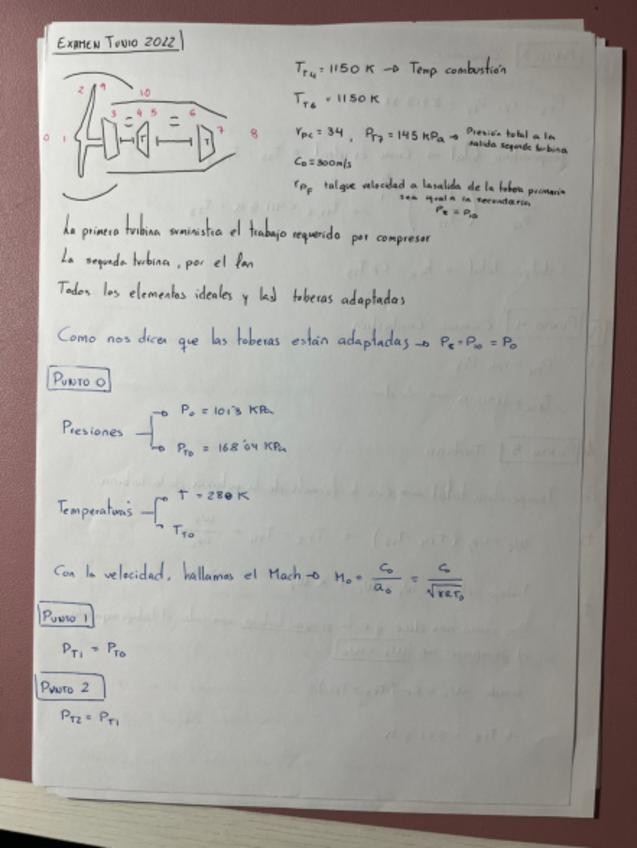 EXAMEN JUNIO 2022
T_T4 = 1150 K → Temp combustión
T_T6 = 1150 K
r_pc = 34, P_T7 = 145 KPa → Presión total a la salida segunda turbina
C_0 = 300 m/s
r_PF tal que velocidad a la salida de la tobera primaria sea igual a la secundaria
P_8 = P_10
2 9 10
3 4 5 6
0 1 7 8
T T
La primera turbina suministra el trabajo requerido por compresor
La segunda turbina, por el fan
Todos los elementos ideales y las toberas adaptadas
Como nos dicen que las toberas están adaptadas → P_8 = P_10 = P_0
PUNTO 0
Presiones → P_0 = 101'3 KPa
→ P_T0 = 168'04 KPa
Temperaturas → T = 280 K
→ T_T0
Con la velocidad, hallamos el Mach → M_0 = C_0/a_0 = C_0/√γRT_0
PUNTO 1
P_T1 = P_T0
PUNTO 2
P_T2 = P_T1